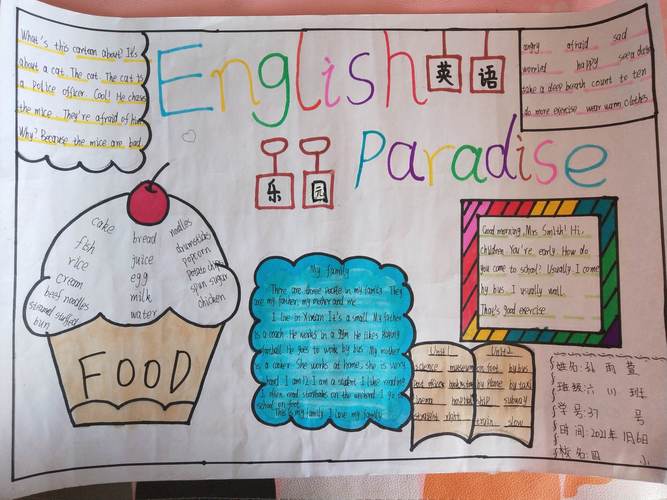 What's this cartoon about? It's
about a cat. The cat. The cat is
a police officer. Cool! He chases
the mice. They're afraid of him.
Why? Because the mice are bad.
English
英语
乐园
Paradise
angry afraid sad
worried happy see a doctor
take a deep breath count to ten
do more exercise wear warm clothes
cake bread noodles
fish juice drumsticks
rice egg popcorn
cream milk potato chips
beef noodles water spun sugar
steamed stuffed chicken
bun
FOOD
My family
There are three people in my family. They
are my father, my mother and me.
I live in It's a small. My father
is a coach. He works in a gym. He likes playing
football. He goes to work by bus. My mother
is a cooker. She works at home, she is very
hard. I am 12. I am a student. I like reading
I often read storybooks on the weekend. I go
school on foot.
This is my family. I love my family.
Good morning, Mrs Smith! Hi,
children. You're early. How do
you come to school? Usually, I come
by bus. I usually walk.
That's good exercise
Unit1 Unit2
science museum on foot by bus
post office bookstore by plane by taxi
cinema hospital ship subway
straight right train slow
姓名:孙雨萱
班级:六(1)班
学号:37号
时间:2021年1月6日
校名:四小